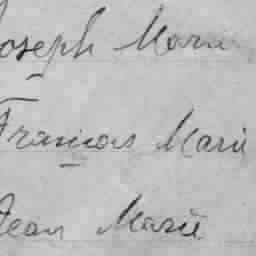 Joseph Marie
François Marie
Jean Marie